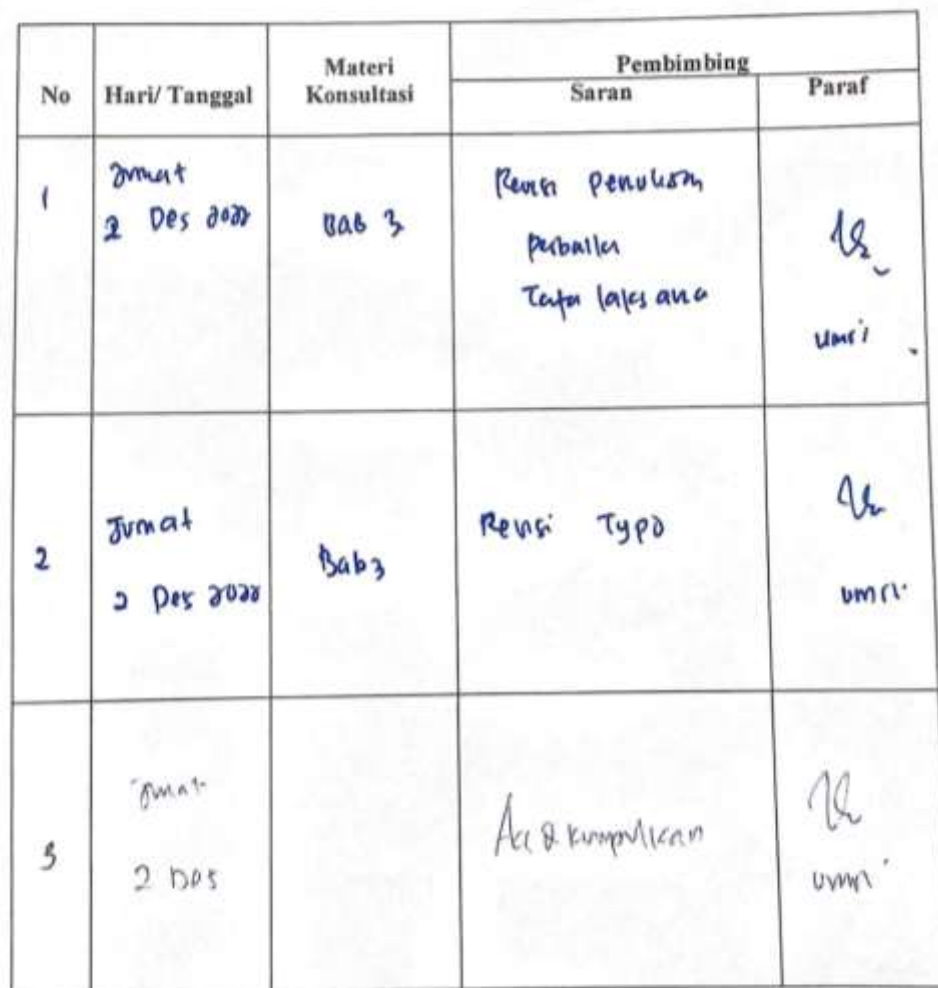 No
Hari/ Tanggal
Materi
Konsultasi
Pembimbing
Saran
Paraf
1
Jumat
2 Des 2022
Bab 3
Revisi penulisan
perbaiki
Tata laksana
umri
2
Jumat
2 Des 2022
Bab 3
Revisi Typo
umri
3
Jumat
2 Des
Acc & kumpulkan
umri